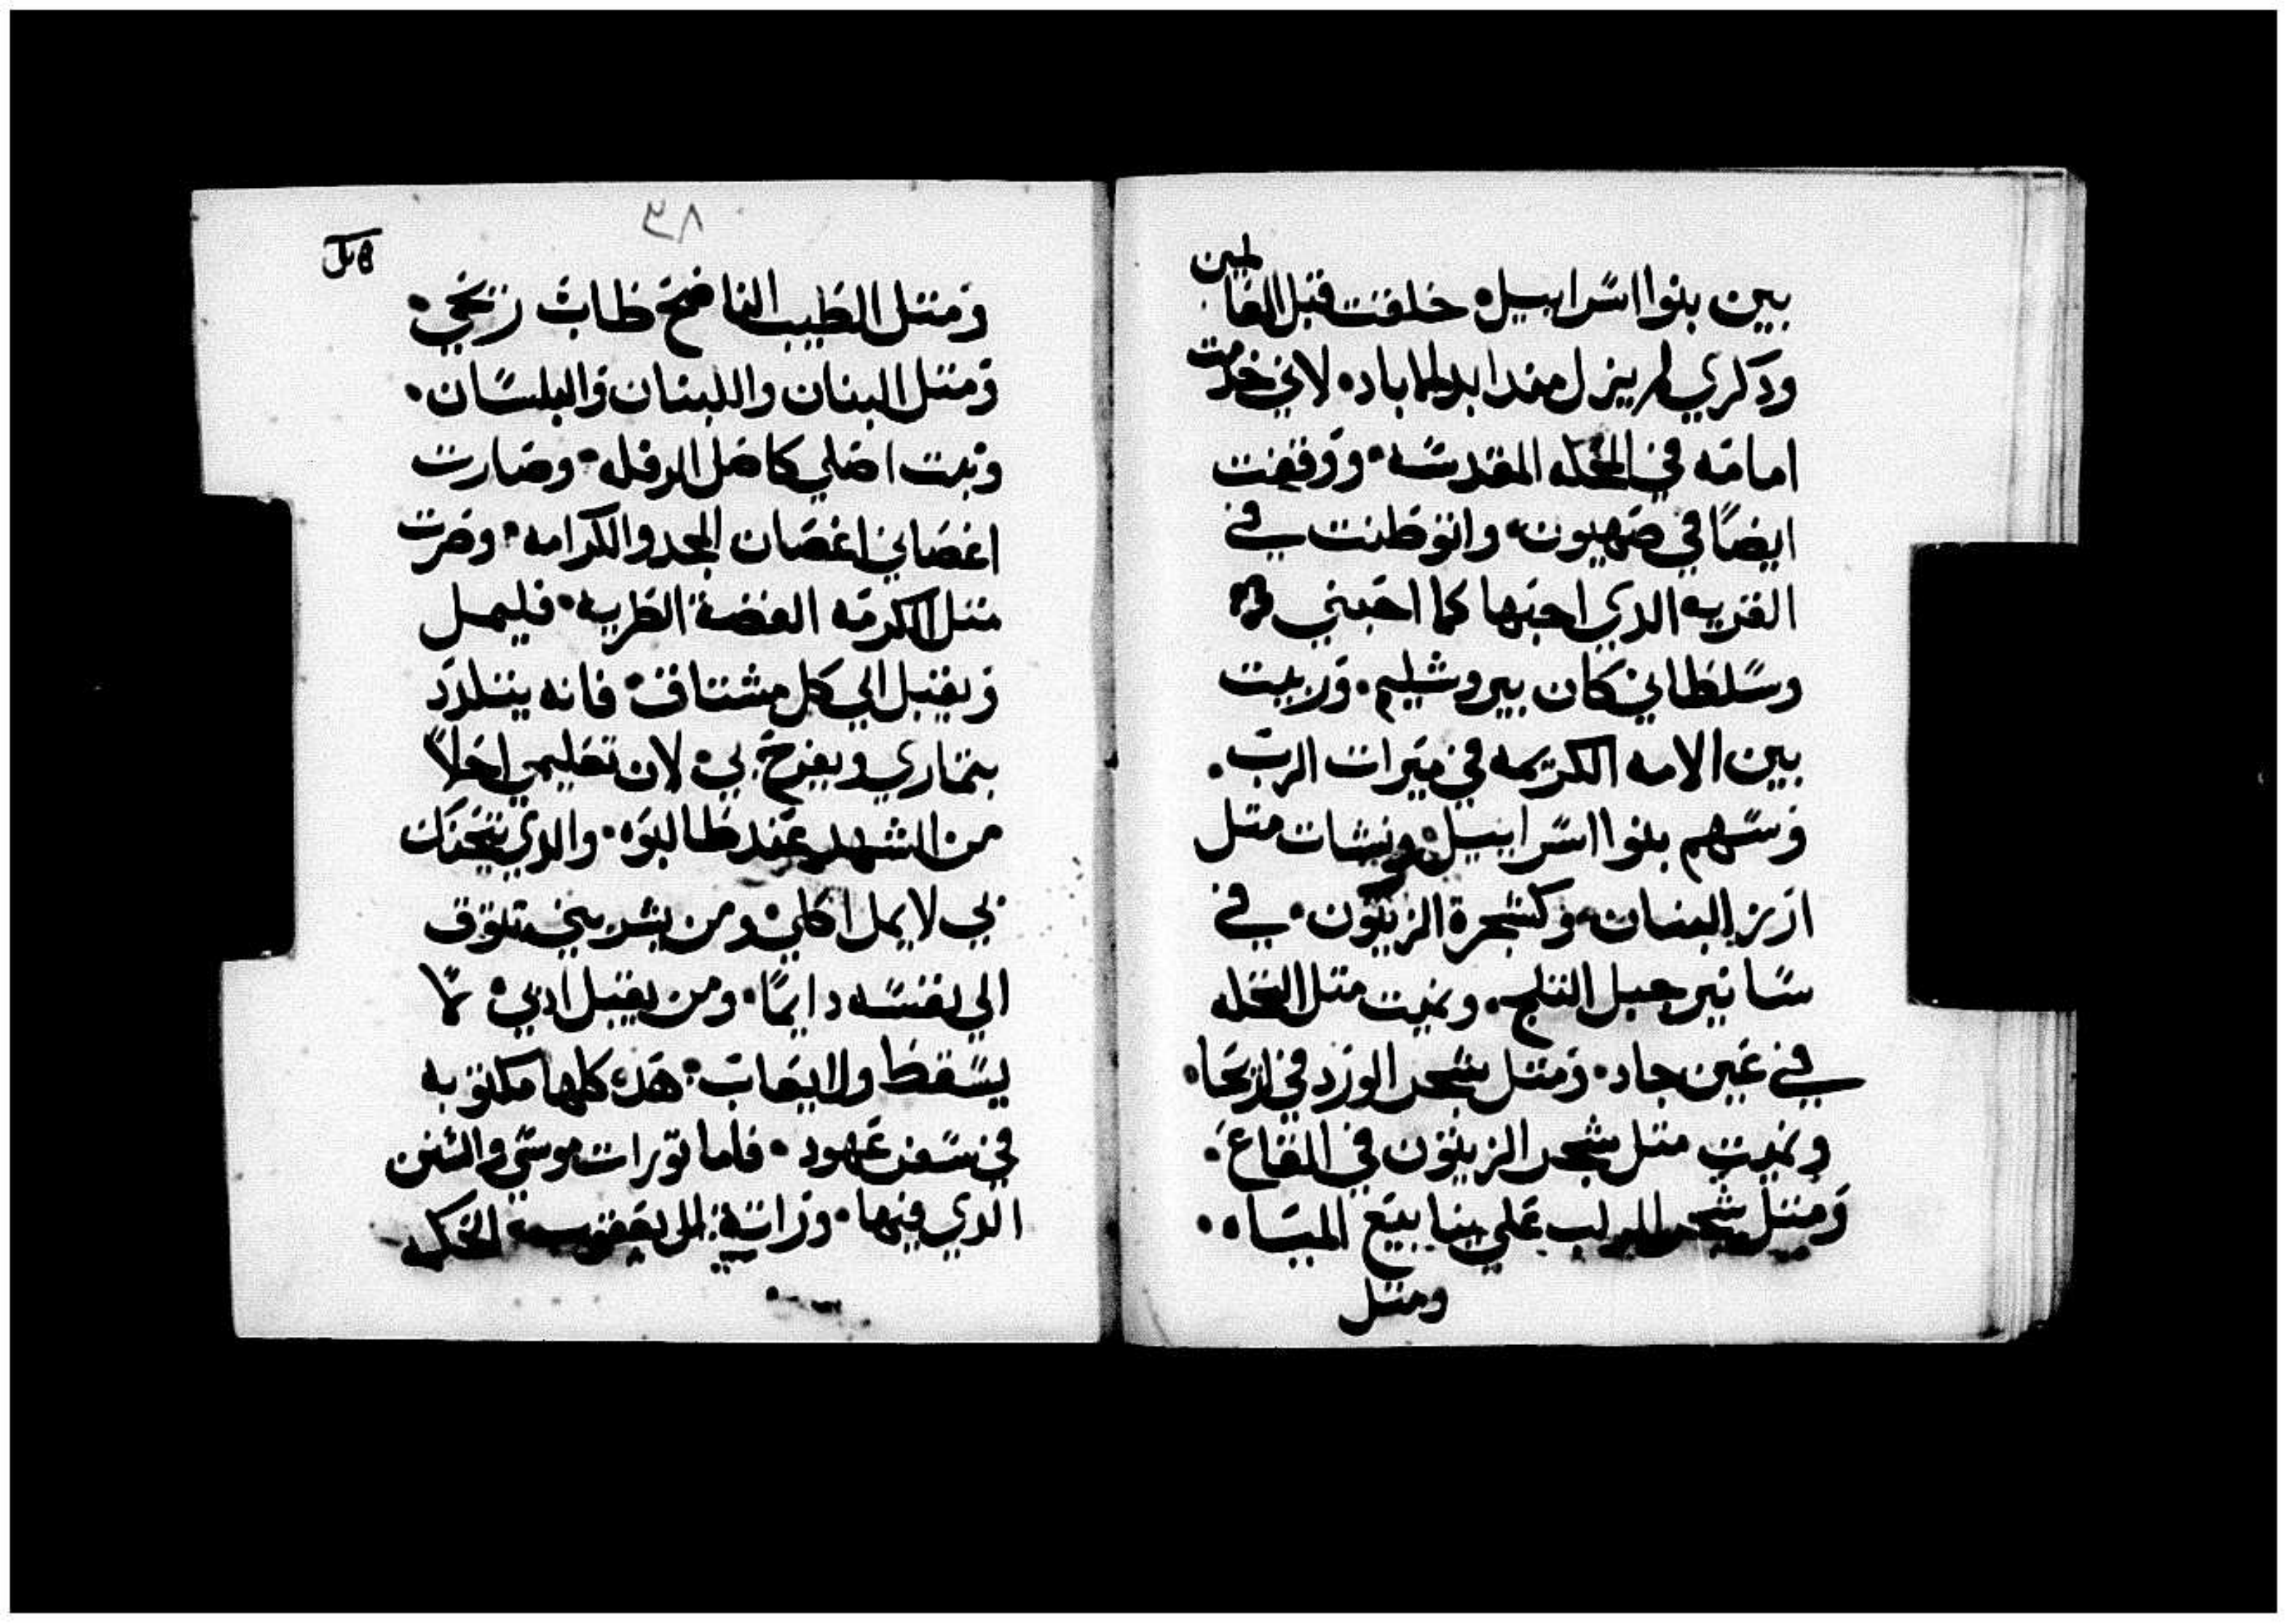 بين بنوا اسراييل خلقت قبل العالمين
ودكري لم يزل منذ ابد الاباد لاني خدمت
امامه في الحكله المقدسه ووقفت
ايضا في صهيون وانوطنت في
القريه الدي احبها كما احبني
وسلطاني كان بيروشليم وربيت
بين الامه الكريمه في ميرات الرب
وسهم بنوا اسراييل ونشات متل
ارز البنان وكشجرة الزيتون في
سانير جبل التلج ونميت متل النخله
في عين جاد ومتل شجر الورد في اريحا
ونميت متل شجر الزيتون في البقاع
ومتل شجر الدلب علي ينابيع المياه
ومتل
٣٨
ومتل الطيب الناضح طاب ريحي
ومتل البنان واللبنان والبلسان
وتبت اصلي كاصل الدفله وصارت
اغصاني اغصان المجد والكرامه وصرت
متل الكرمه الغضة الطريه فليمل
ويقبل الي كل مشتاق فانه يتلدد
بتماري ويفرح بي لان تعليمي احلا
من الشهد عند طالبوه والدي يتحنك
بي لا يمل اكلي ومن يشربني تتوق
الي نفسه دايما ومن يقبل ادبي لا
يسقط ولا يعاب هده كلها مكتوبه
في سفر عهود فاما تورات موسي والسنن
الدي فيها وراتة ال يعقوب الحكه